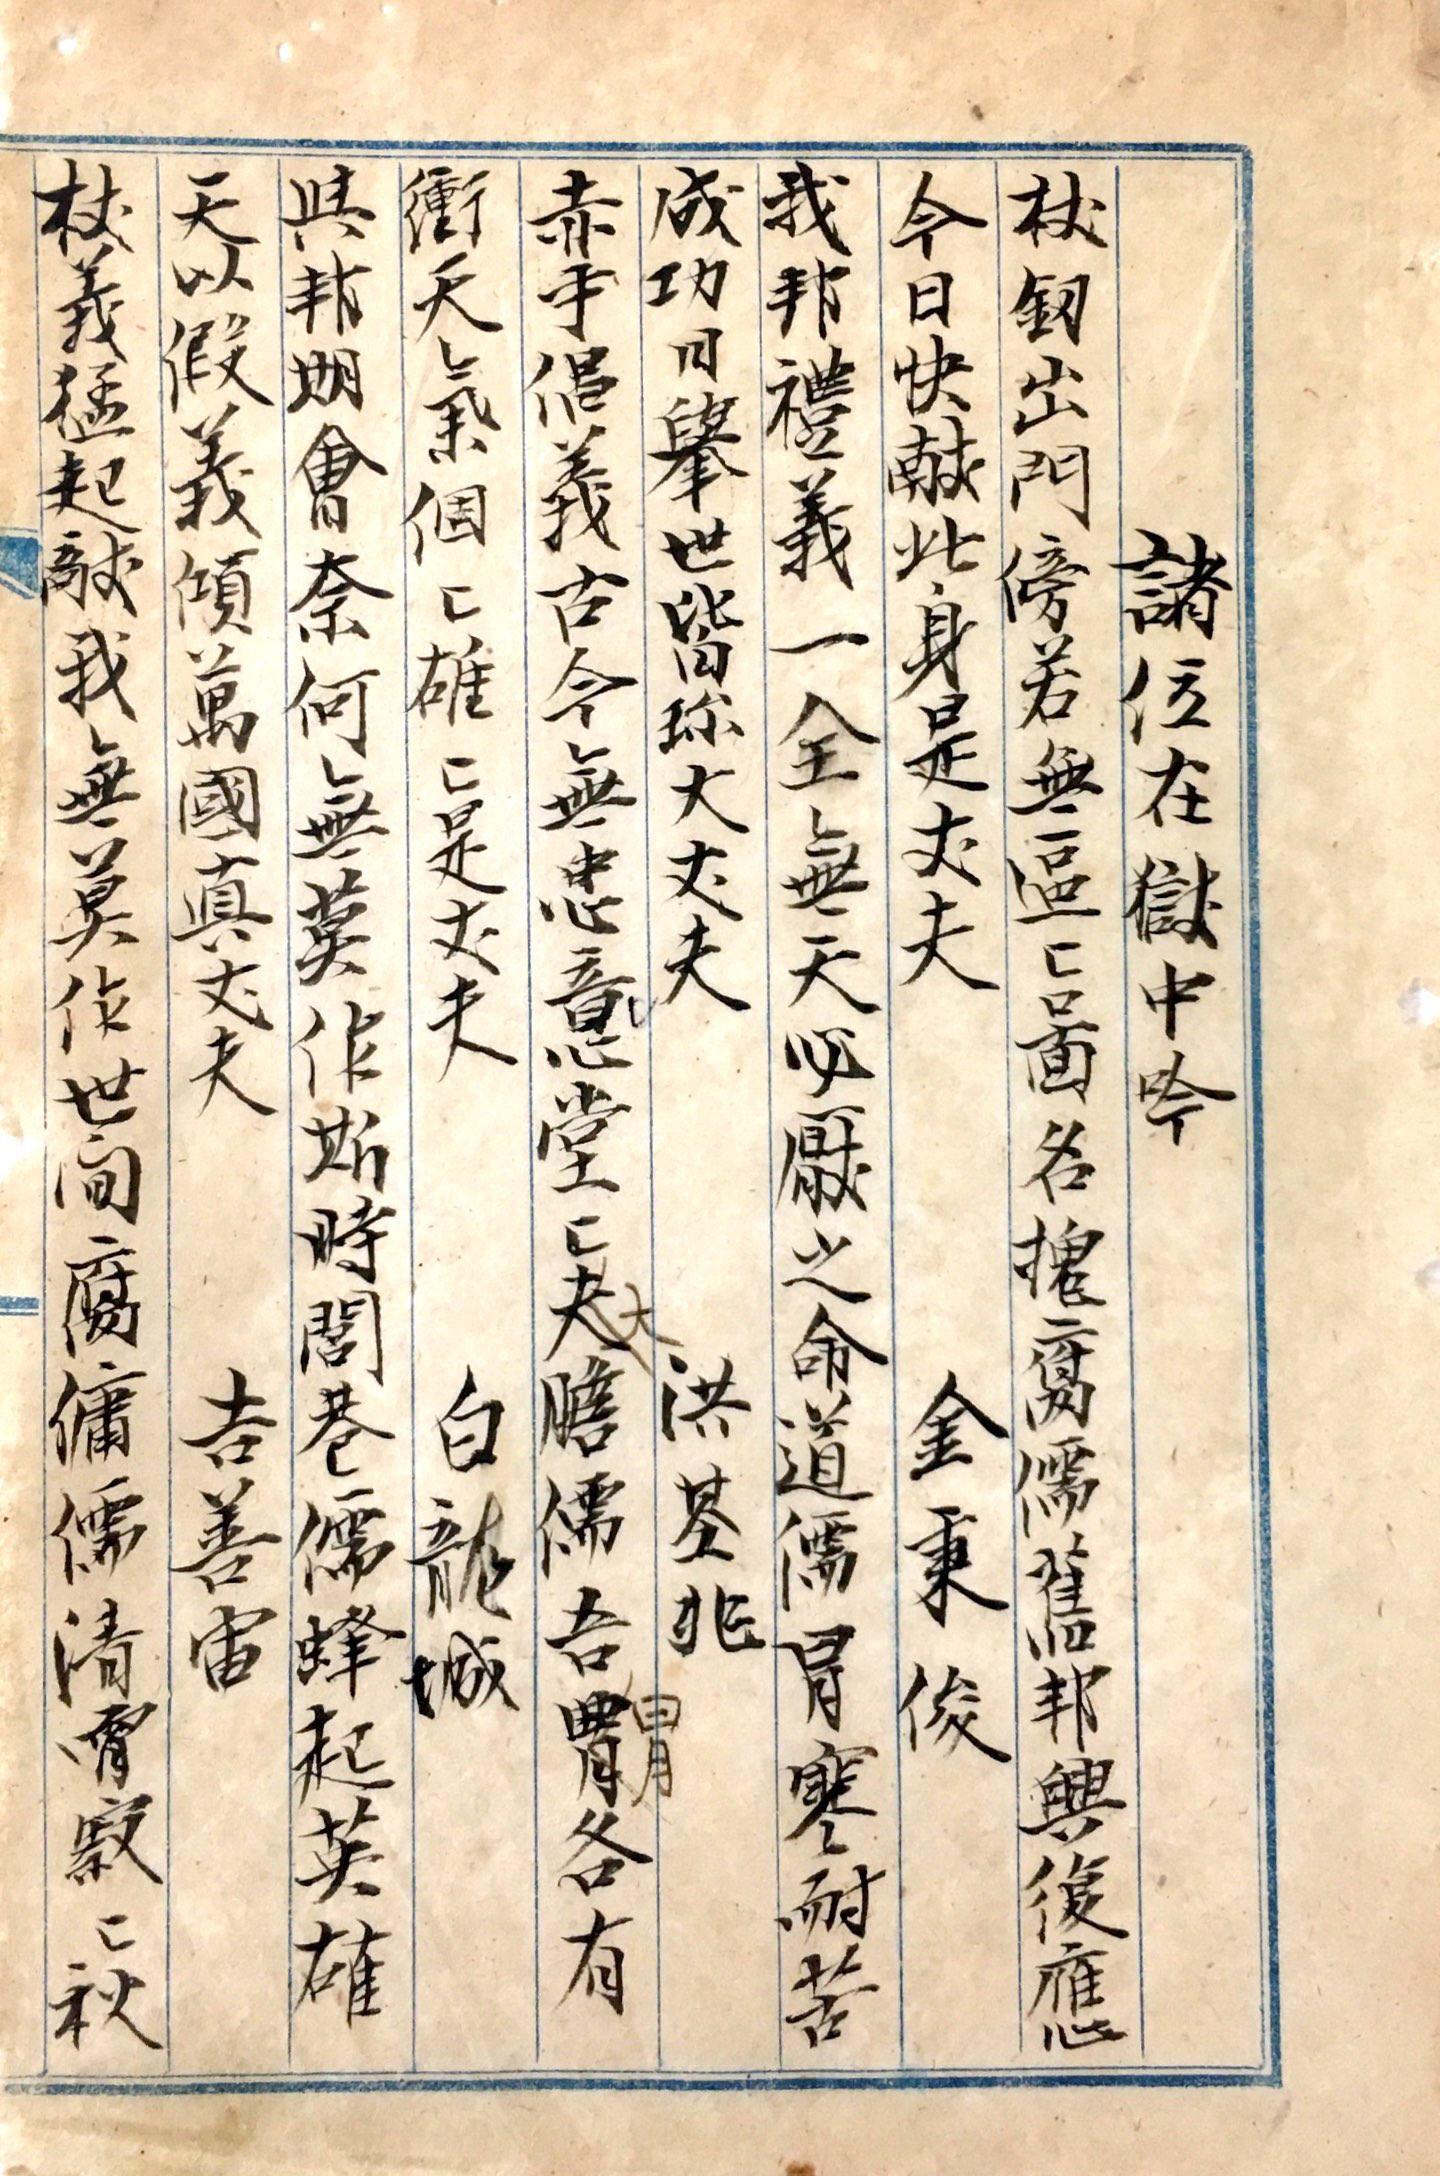 諸位在獄中吟
杖釼出門傍若無區〻面名槐腐儒舊邦興復應
今日快献此身是丈夫 金秉俊
我邦禮義一全無天必厭之命道儒胃寒耐苦
成功日擧世皆珎大丈夫 洪基兆
赤手倡義古今無忠意堂〻夫大膽儒吾胃胃各有
衝天氣個〻雄〻是丈夫 白龍城
與邦期會奈何無莫作斯時閭巷儒蜂起英雄
天以假義傾萬國真丈夫 吉善宙
杖義猛起敵我無莫作世间腐傭儒清霄寂〻秋